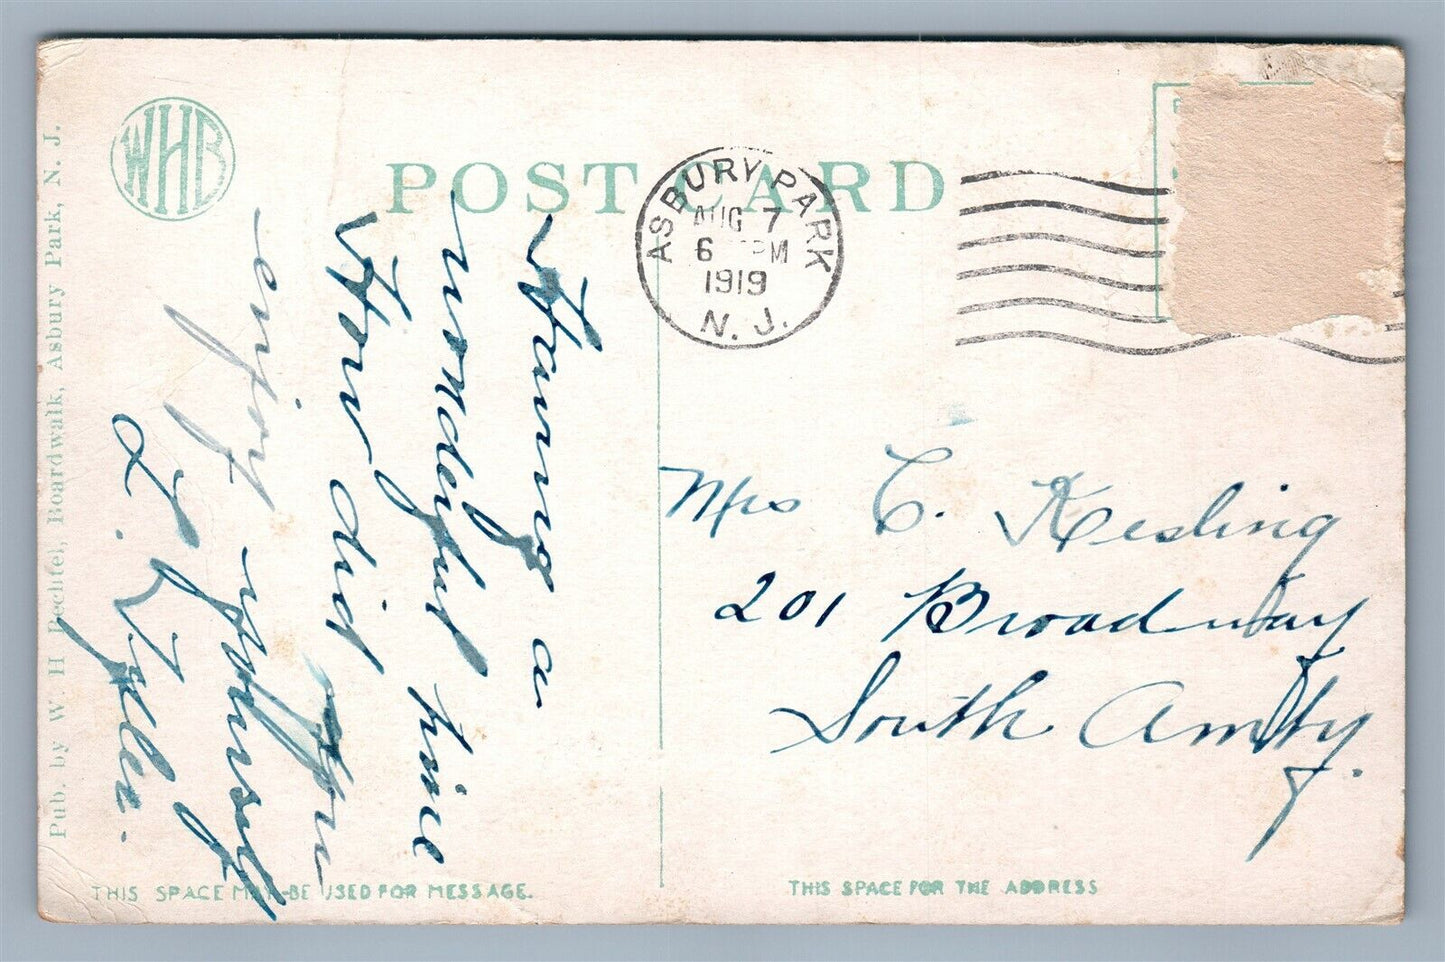 WHB
POST CARD
ASBURY PARK
AUG 7
6 PM
1919
N. J.
Having a
wonderful time
How did you
enjoy yourself
L.
Mrs C. Kesling
201 Broadway
South Amby.
Pub. by W. H Bechtel, Boardwalk, Asbury Park, N. J.
THIS SPACE MAY BE USED FOR MESSAGE.
THIS SPACE FOR THE ADDRESS